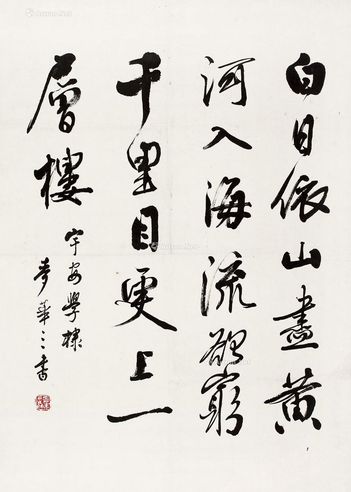 白日依山盡黃
河入海流欲窮
千里目更上一
層樓
宇安學棣
麥華三書